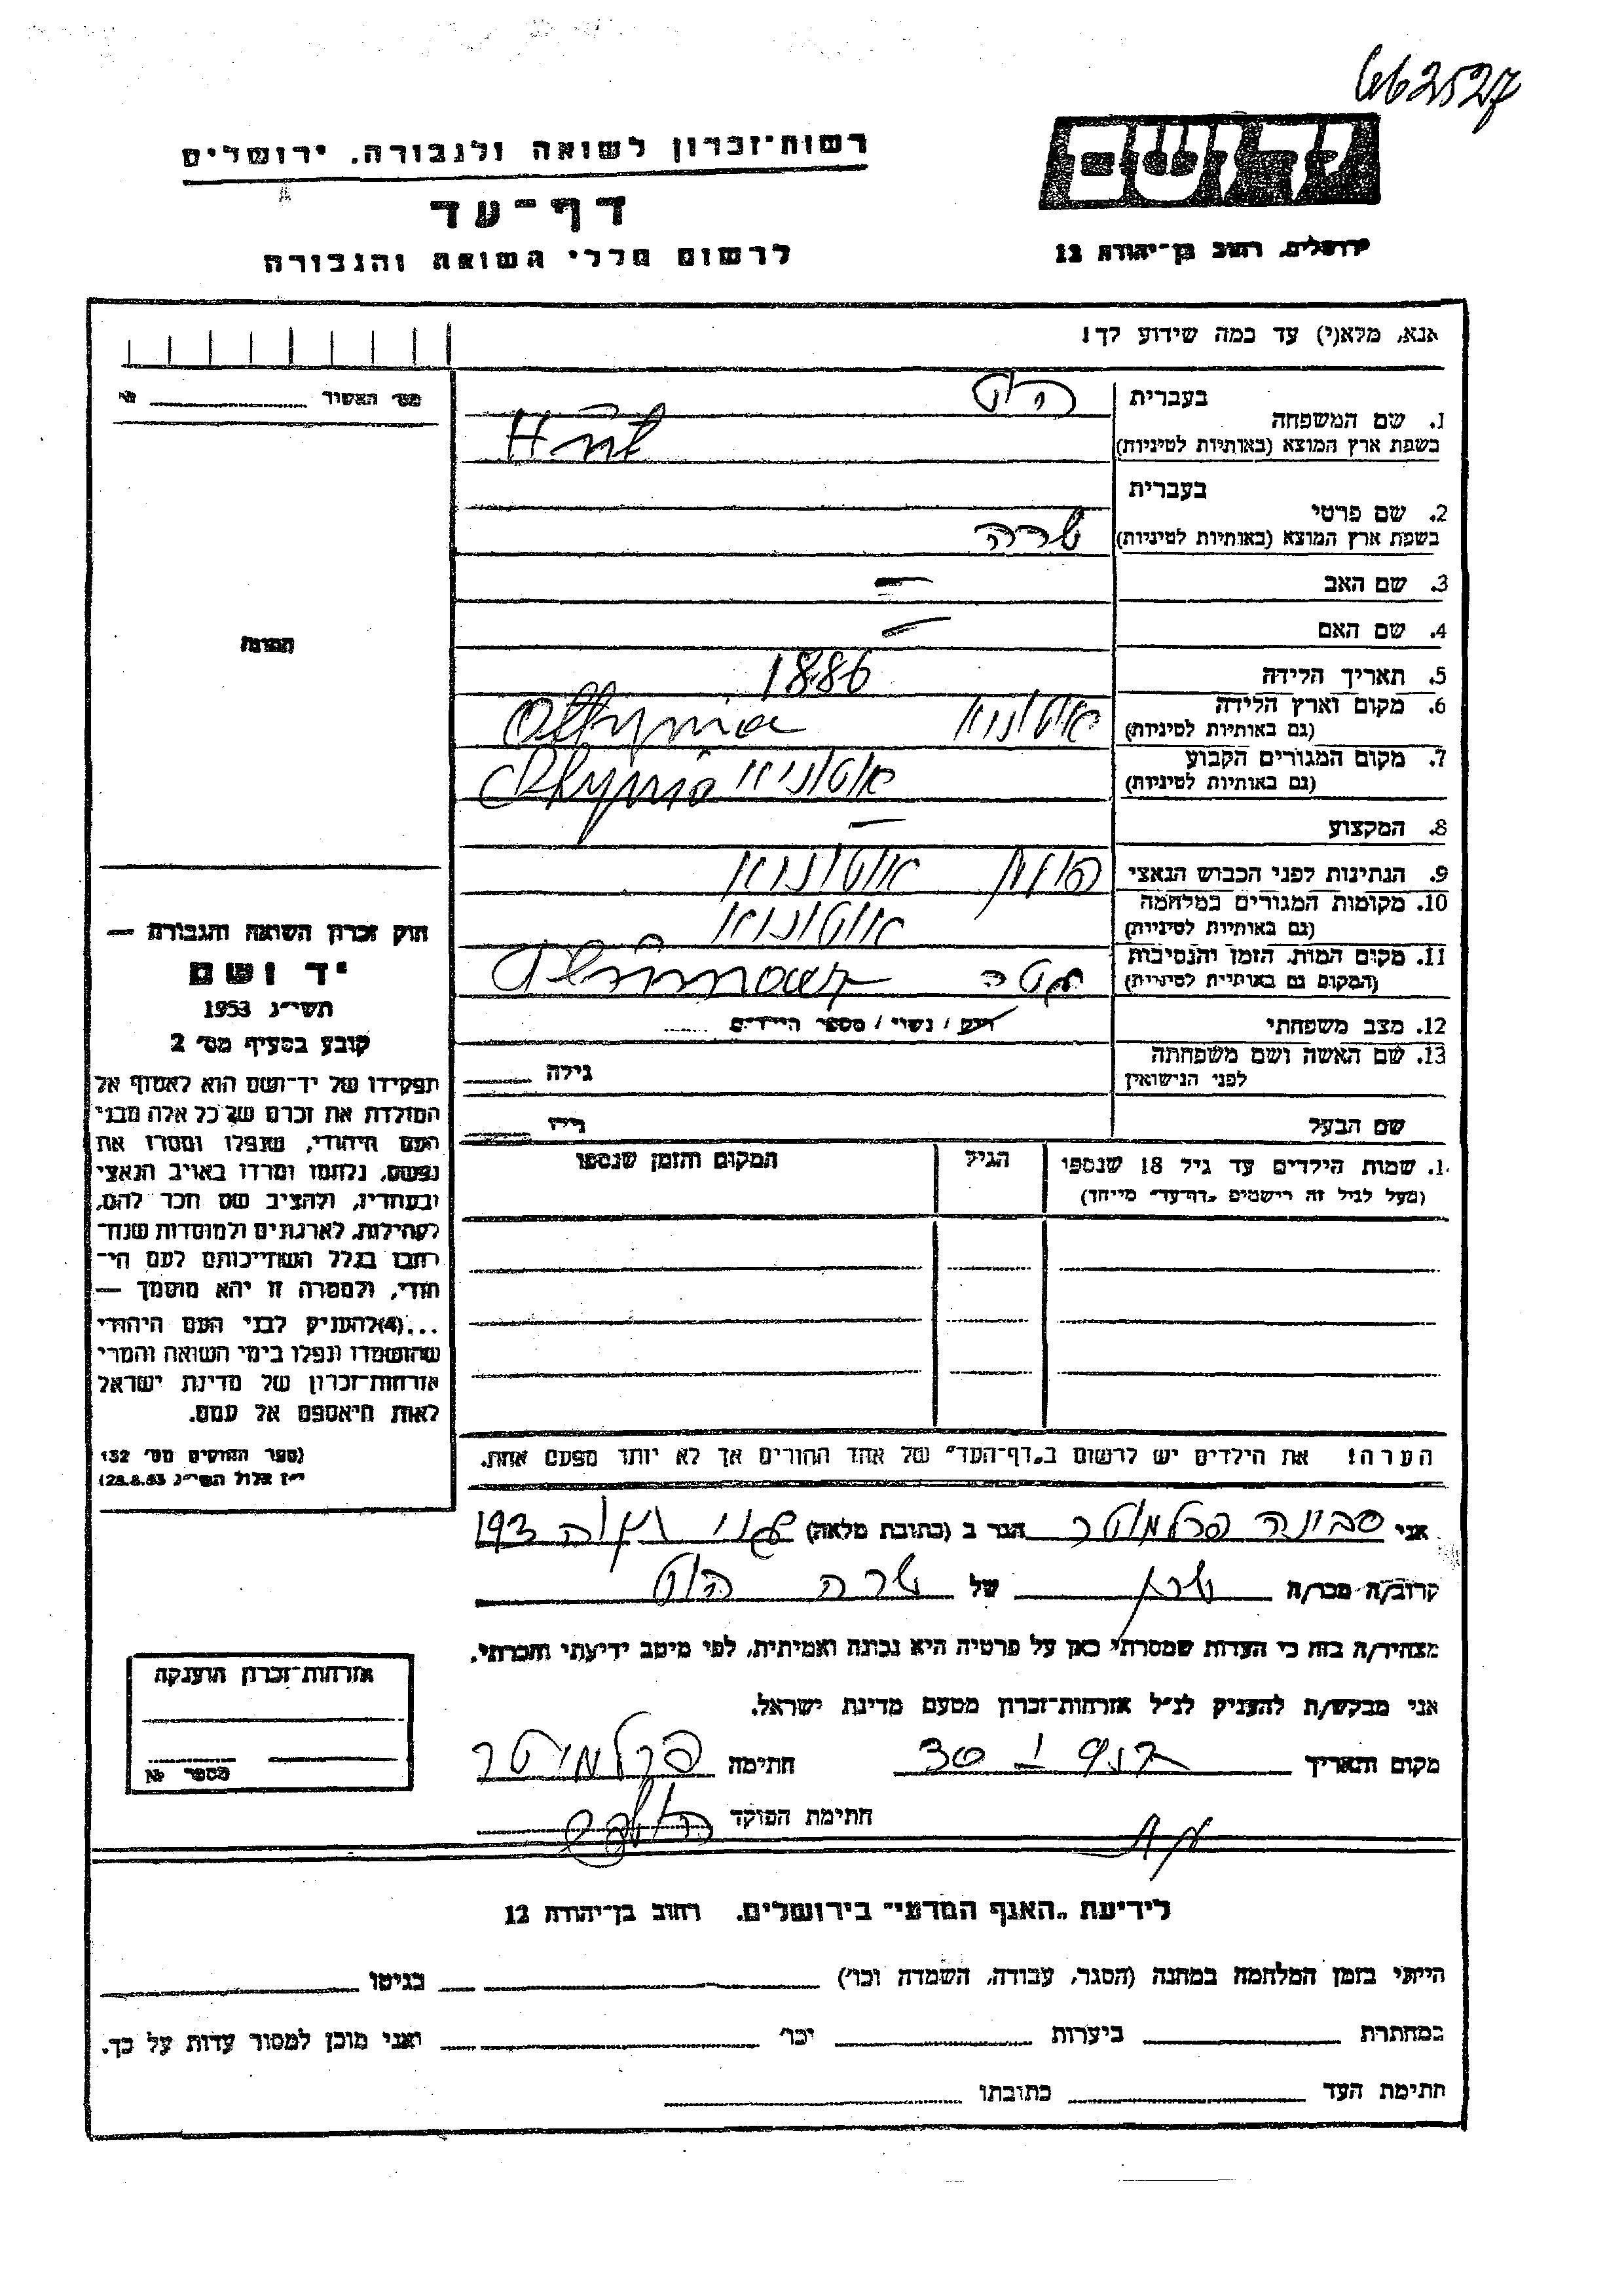 662527
יד ושם
ירושלים, רחוב בן־יהודה 12
רשות־זכרון לשואה ולגבורה, ירושלים
דף־עד
לרשום חללי השואה והגבורה
אנא, מלא(י) עד כמה שידוע לך!
מס׳ האשור № 
1. שם המשפחה
בעברית
בשפת ארץ המוצא (באותיות לטיניות)
2. שם פרטי
בעברית
בשפת ארץ המוצא (באותיות לטיניות) שרה
3. שם האב —
4. שם האם —
5. תאריך הלידה 1886
6. מקום וארץ הלידה
(גם באותיות לטיניות)
7. מקום המגורים הקבוע
(גם באותיות לטיניות)
8. המקצוע —
9. הנתינות לפני הכבוש הנאצי
10. מקומות המגורים במלחמה
(גם באותיות לטיניות)
11. מקום המות, הזמן והנסיבות
(המקום גם באותיות לטיניות)
12. מצב משפחתי רווק / נשוי / מספר הילדים
13. שם האשה ושם משפחתה
לפני הנישואין
גילה
שם הבעל גילו
שמות הילדים עד גיל 18 שנספו הגיל המקום והזמן שנספו
(מעל לגיל זה רישמים „דף־עד״ מייחד)
הערה! את הילדים יש לרשום ב„דף־העד״ של אחד ההורים אך לא יותר מפעם אחת.
תמונה
חוק זכרון השואה והגבורה —
יד ושם
תשי״ג 1953
קובע בסעיף מס׳ 2
תפקידו של יד־ושם הוא לאסוף אל
המולדת את זכרם של כל אלה מבני
העם היהודי, שנפלו ומסרו את
נפשם, נלחמו ומרדו באויב הנאצי
ובעוזריו, ולהציב שם וזכר להם,
לקהילות, לארגונים ולמוסדות שנח־
רבו בגלל השתייכותם לעם הי־
הודי, ולמטרה זו יהא מוסמך —
...(4) להעניק לבני העם היהודי
שהושמדו ונפלו בימי השואה והמרי
אזרחות־זכרון של מדינת ישראל
לאות היאספם אל עמם.
(ספר החוקים מס׳ 132
י״ז אלול תשי״ג 28.8.53)
אני הגר ב (כתובת מלאה) 193
קרוב/ה מכר/ה שכן של שרה
מצהיר/ה בזה כי העדות שמסרתי כאן על פרטיה היא נכונה ואמיתית, לפי מיטב ידיעתי והכרתי.
אני מבקש/ת להעניק לנ״ל אזרחות־זכרון מטעם מדינת ישראל.
מקום ותאריך חתימה
חתימת הפוקד
אזרחות־זכרון הוענקה
מספר №
לידיעת „האגף המדעי״ בירושלים, רחוב בן־יהודה 12
הייתי בזמן המלחמה במחנה (הסגר, עבודה, השמדה וכו׳) בגיטו
במחתרת ביערות וכו׳ ואני מוכן למסור עדות על כך.
חתימת העד כתובתו